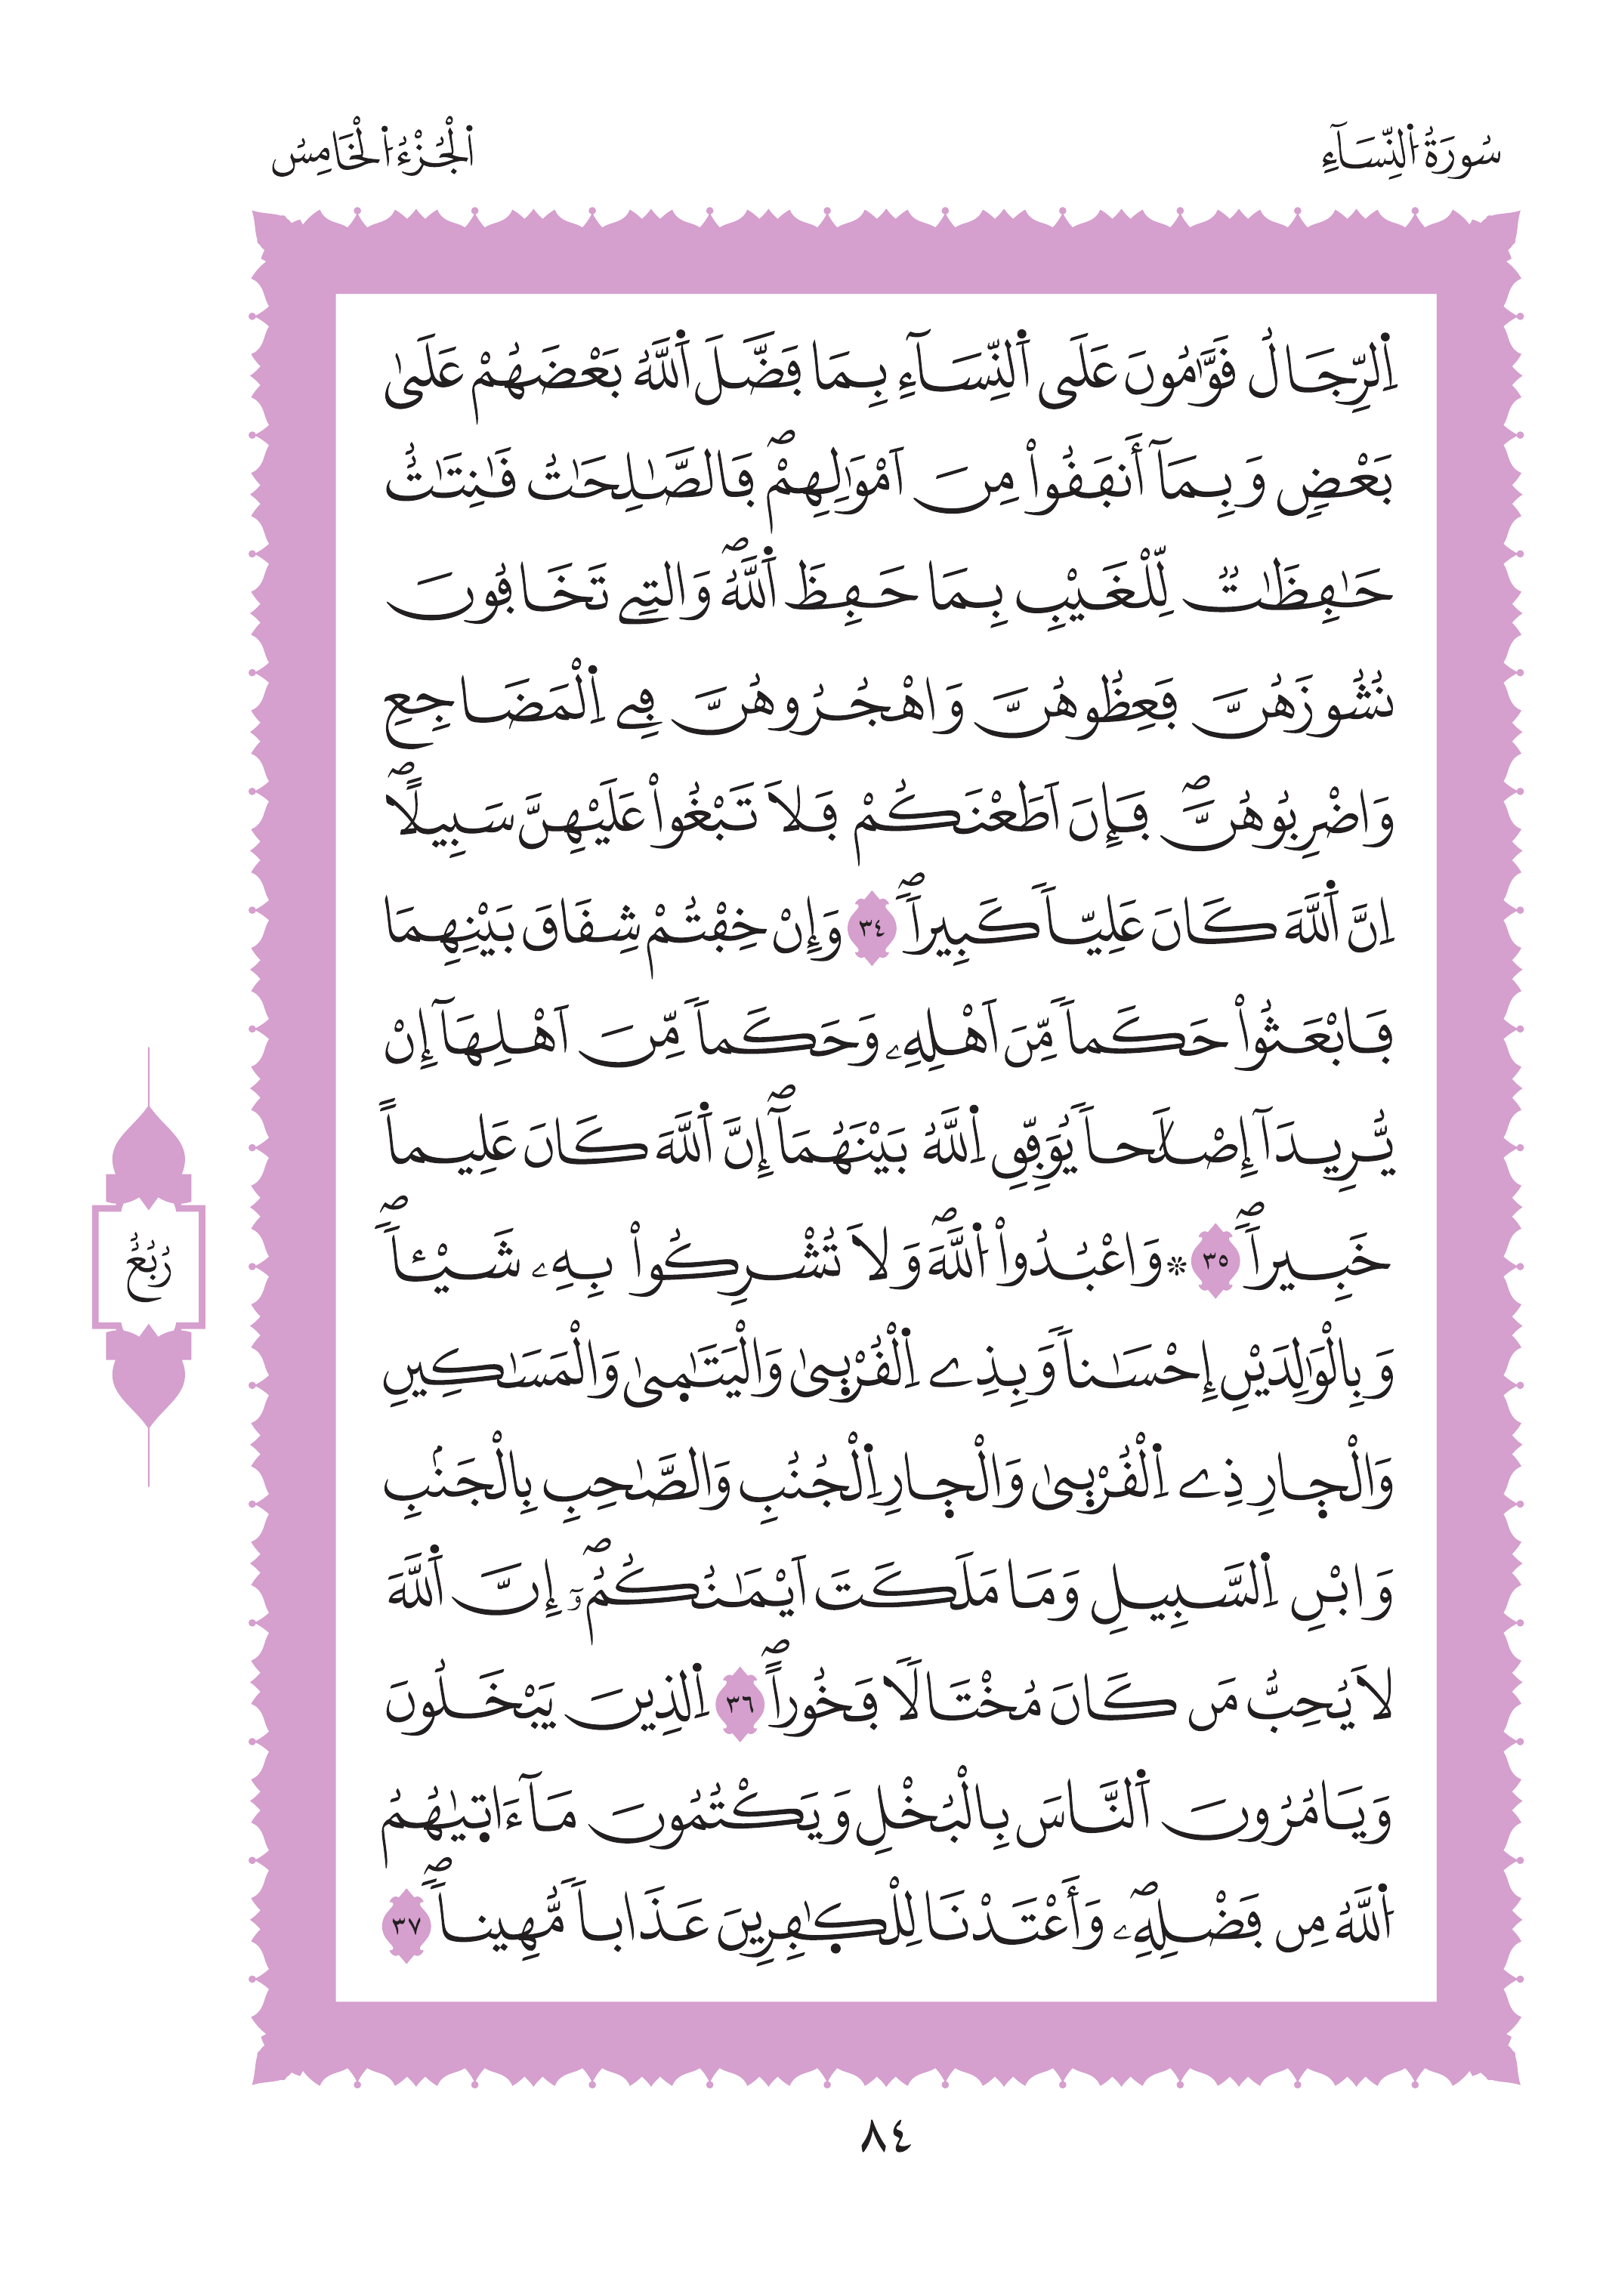 سُورَةُ اُ۬لنِّسَآءِ
اَ۬لْجُزْءُ اُ۬لْخَامِسُ
اِ۬لرِّجَالُ قَوَّٰمُونَ عَلَى اَ۬لنِّسَآءِ بِمَا فَضَّلَ اَ۬للَّهُ بَعْضَهُمْ عَلَىٰ
بَعْضٖ وَبِمَآ أَنفَقُواْ مِنَ اَمْوَٰلِهِمْۖ فَالصَّٰلِحَٰتُ قَٰنِتَٰتٌ
حَٰفِظَٰتٞ لِّلْغَيْبِ بِمَا حَفِظَ اَ۬للَّهُۖ وَالتِے تَخَافُونَ
نُشُوزَهُنَّ فَعِظُوهُنَّ وَاهْجُرُوهُنَّ فِے اِ۬لْمَضَاجِعِ
وَاضْرِبُوهُنَّۖ فَإِنَ اَطَعْنَكُمْ فَلَا تَبْغُواْ عَلَيْهِنَّ سَبِيلًاۖ
اِنَّ اَ۬للَّهَ كَانَ عَلِيّاٗ كَبِيراٗۖ ٣٤ وَإِنْ خِفْتُمْ شِقَاقَ بَيْنِهِمَا
فَابْعَثُواْ حَكَماٗ مِّنَ اَهْلِهِۦ وَحَكَماٗ مِّنَ اَهْلِهَآ إِنْ
يُّرِيدَآ إِصْلَٰحاٗ يُوَفِّقِ اِ۬للَّهُ بَيْنَهُمَآۖ إِنَّ اَ۬للَّهَ كَانَ عَلِيماً
خَبِيراٗۖ ٣٥ ۞وَاعْبُدُواْ اُ۬للَّهَۖ وَلَا تُشْرِكُواْ بِهِۦ شَيْـٔاٗۖ
وَبِالْوَٰلِدَيْنِ إِحْسَٰناٗ وَبِذِے اِ۬لْقُرْبٜىٰ وَالْيَتَٰمٜىٰ وَالْمَسَٰكِينِ
وَالْجٜارِ ذِے اِ۬لْقُرْبٜىٰ وَالْجٜارِ اِ۬لْجُنُبِ وَالصَّٰحِبِ بِالْجَنۢبِ
وَابْنِ اِ۬لسَّبِيلِ وَمَا مَلَكَتَ اَيْمَٰنُكُمُۥٓۖ إِنَّ اَ۬للَّهَ
لَا يُحِبُّ مَن كَانَ مُخْتَالاٗ فَخُوراًۖ ٣٦ اِ۬لذِينَ يَبْخَلُونَ
وَيَامُرُونَ اَ۬لنَّاسَ بِالْبُخْلِ وَيَكْتُمُونَ مَآ ءَاتٜيٰهُمُ
اُ۬للَّهُ مِن فَضْلِهِۦۖ وَأَعْتَدْنَا لِلْكٰٜفِرِينَ عَذَاباٗ مُّهِيناٗۖ ٣٧
رُبُعُ
٨٤